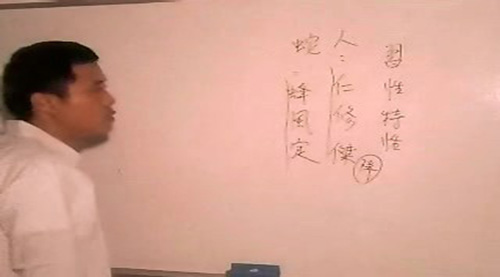 習性特
人:仁修傑
蛇:蜂風定